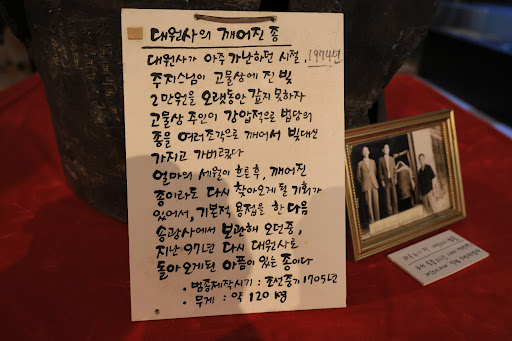 대원사의 깨어진 종
대원사가 아주 가난하던 시절, 1974년
주지스님이 고물상에 진 빚
2만원을 오랫동안 갚지 못하자
고물상 주인이 강압적으로 법당의
종을 여러조각으로 깨어서 빚대신
가지고 가버렸다
얼마의 세월이 흐른후, 깨어진
종이라도 다시 찾아오게 될 기회가
있어서, 기본적 용접을 한 다음
송광사에서 보관해 오던중,
지난 97년 다시 대원사로
돌아오게된 아픔이 있는 종이다
· 범종제작시기 : 조선중기 1705년
· 무게 : 약 120 kg